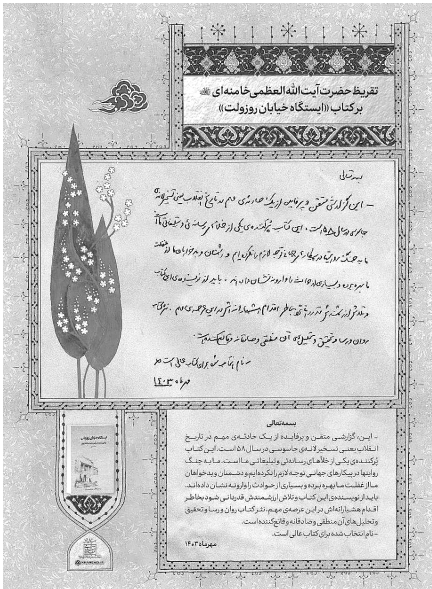 تقریظ حضرت آیت الله العظمی خامنه‌ای
بر کتاب «ایستگاه خیابان روزولت»
بسمه تعالی
- این گزارشی متقن و پرفایده از یک حادثه‌ی مهم در تاریخ انقلاب یعنی تسخیر لانه‌ی
جاسوسی در سال ۵۸ است. این کتاب پُرکننده‌ی یکی از خلأهای رسانه‌ئی و تبلیغاتی ما است
ما به جنگ روایتها در پیکارهای جهانی توجه لازم را نکرده‌ایم و دشمنان و بدخواهان ما از غفلت
ما بهره برده و بسیاری از حوادث را وارونه نشان داده‌اند. باید از نویسنده‌ی این کتاب
و تلاش ارزشمندش قدردانی شود بخاطر اقدام هشیارانه‌اش در این عرصه‌ی مهم. نثر کتاب
روان و رسا و تحقیق و تحلیل‌های آن منطقی و صادقانه و قانع‌کننده است.
- نام انتخاب شده برای کتاب عالی است
مهرماه ۱۴۰۳
بسمه‌تعالی
- این، گزارشی متقن و پرفایده از یک حادثه‌ی مهم در تاریخ
انقلاب یعنی تسخیر لانه‌ی جاسوسی در سال ۵۸ است. این کتاب
پُرکننده‌ی یکی از خلأهای رسانه‌ئی و تبلیغاتی ما است. ما به جنگ
روایتها در پیکارهای جهانی توجه لازم را نکرده‌ایم و دشمنان و بدخواهان
ما از غفلت ما بهره برده و بسیاری از حوادث را وارونه نشان داده‌اند.
باید از نویسنده‌ی این کتاب و تلاش ارزشمندش قدردانی شود بخاطر
اقدام هشیارانه‌اش در این عرصه‌ی مهم. نثر کتاب روان و رسا و تحقیق
و تحلیل‌های آن منطقی و صادقانه و قانع‌کننده است.
- نام انتخاب شده برای کتاب عالی است.
مهرماه ۱۴۰۳